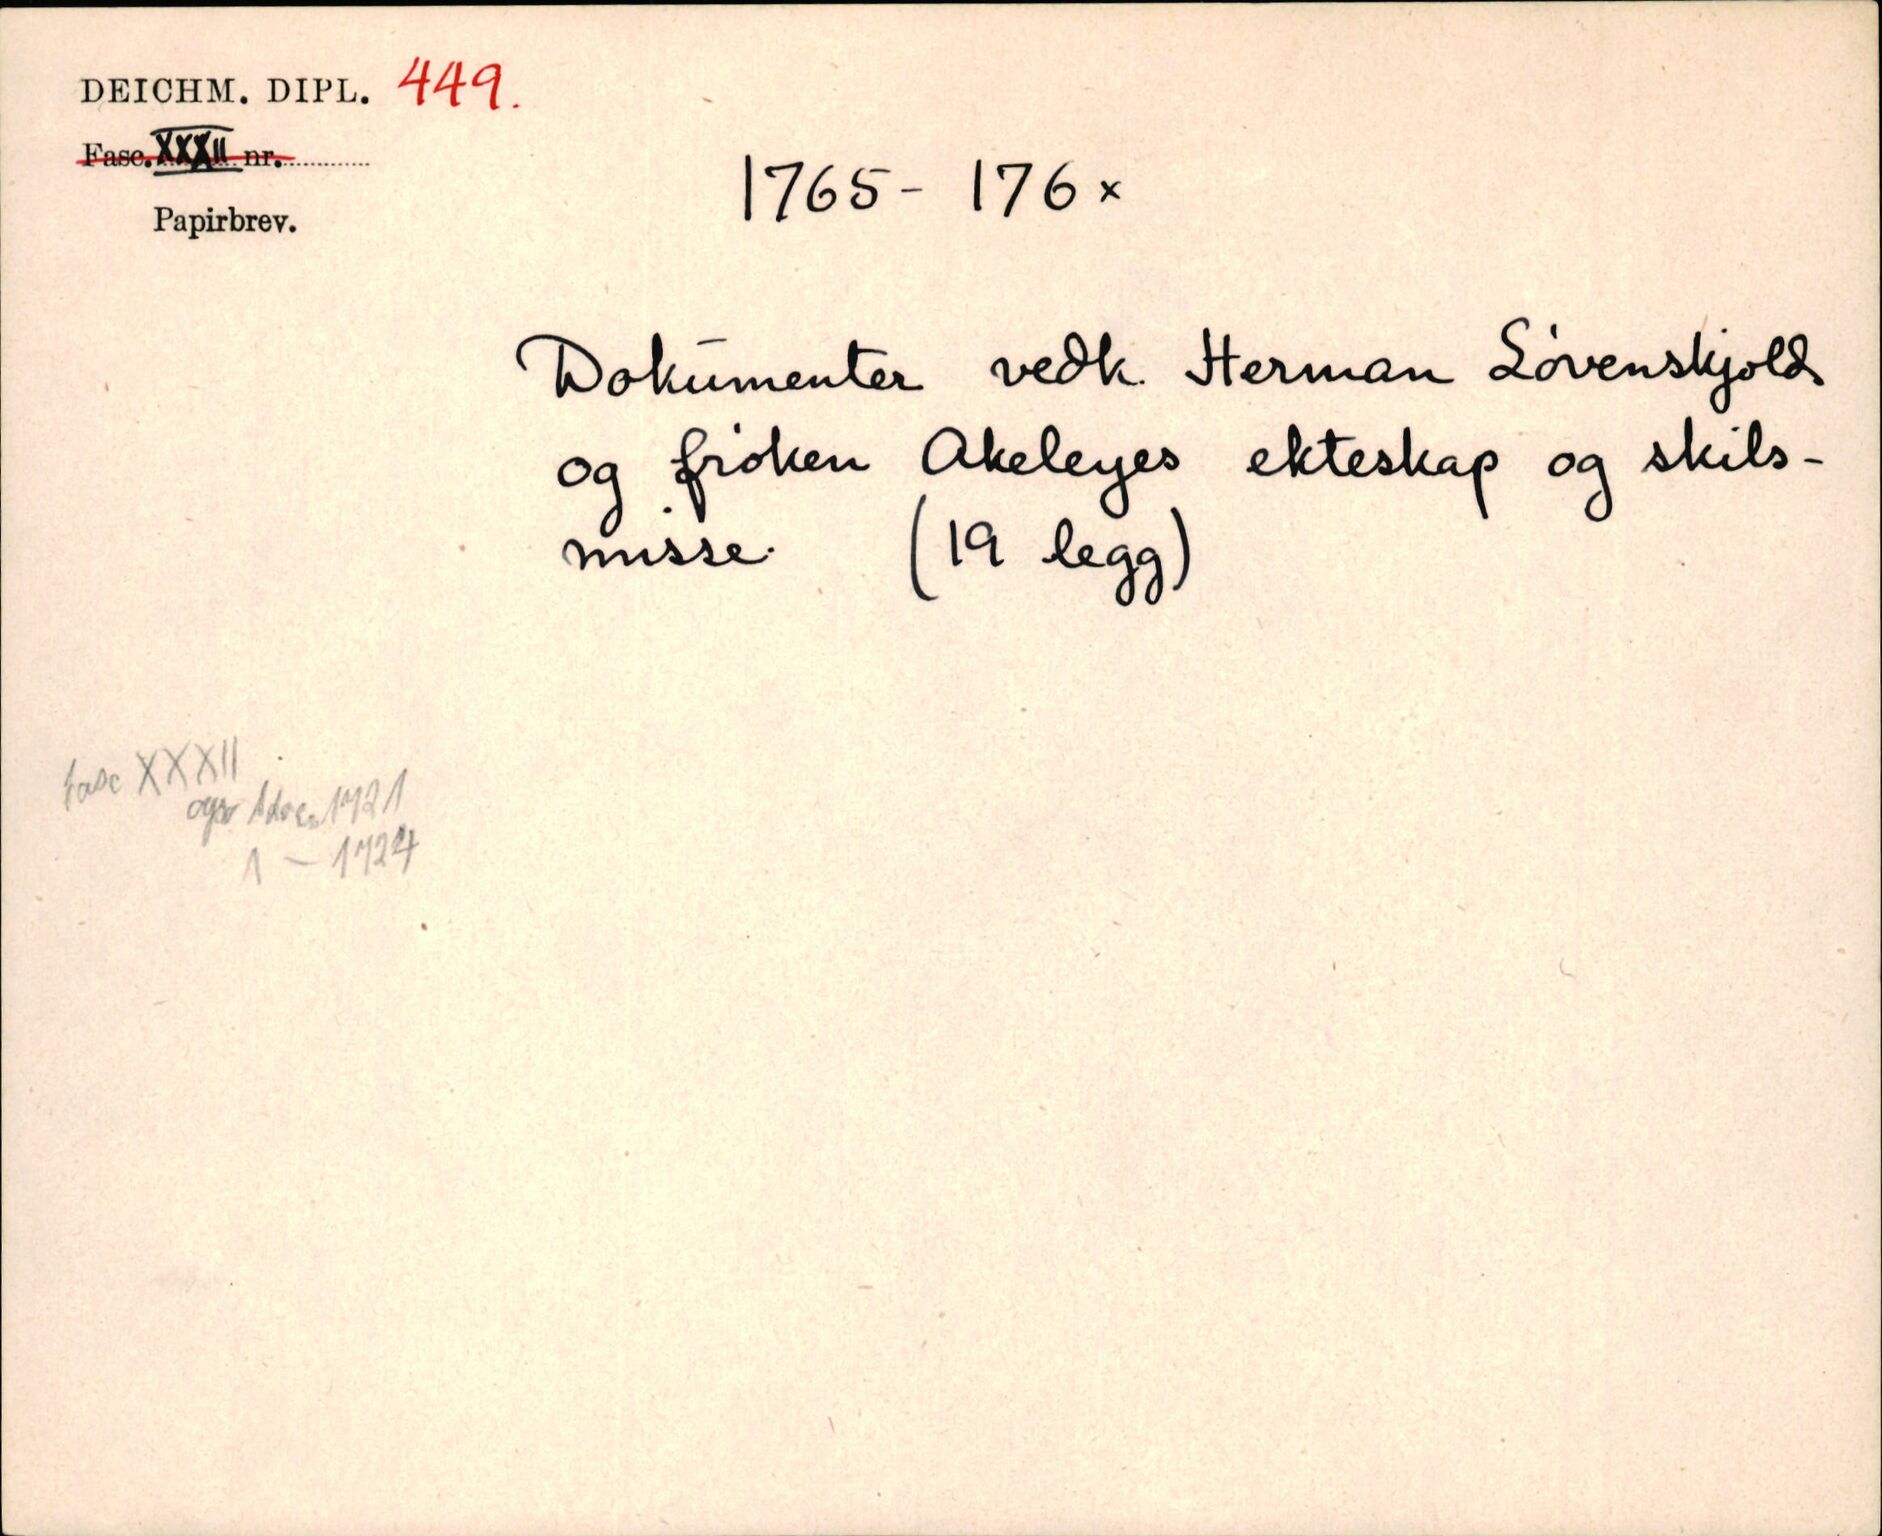 DEICHM. DIPL. 449.
Fasc. XXXII nr.
Papirbrev.
1765 - 176x
Dokumenter vedk. Herman Løvenskjolds
og frøken Akeleyes ekteskap og skils-
misse. (19 legg)
fasc XXXII
også 1721
1 - 1724